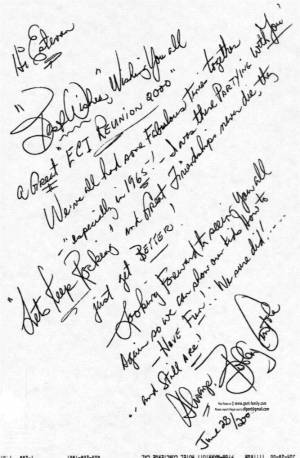 Hi Esteban
"Best Wishes," Wishing You all
a Great "ECI REUNION 2000"
We've all had some Fabulous Times together
"especially in 1965"! - I was there PARTYing with You"
"Lets Keep Rocking" and Great Friendships never die, they
just get BETTER!
Looking Forward to seeing You all
Again so we can show our kids How to
- HAVE Fun!.. We sure did!.....
.. and Still ARE!
Always
June 28/2000